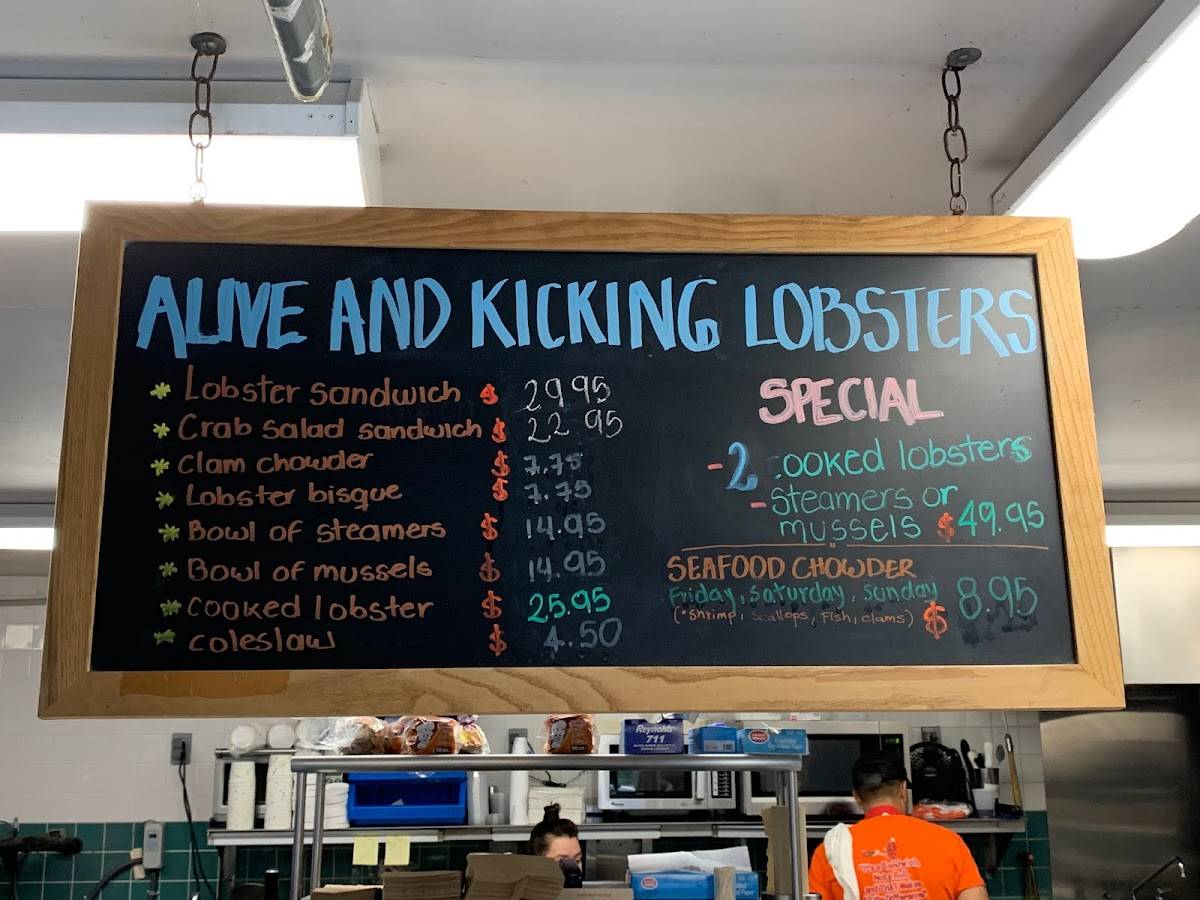 ALIVE AND KICKING LOBSTERS
* Lobster sandwich $ 29.95
* Crab salad sandwich $ 22.95
* Clam chowder $ 7.75
* Lobster bisque $ 7.75
* Bowl of steamers $ 14.95
* Bowl of mussels $ 14.95
* cooked lobster $ 25.95
* coleslaw $ 4.50
SPECIAL
- 2 cooked lobsters
- Steamers or
mussels $ 49.95
SEAFOOD CHOWDER
Friday, Saturday, Sunday
(*Shrimp, scallops, Fish, clams) $ 8.95
Reynolds
711